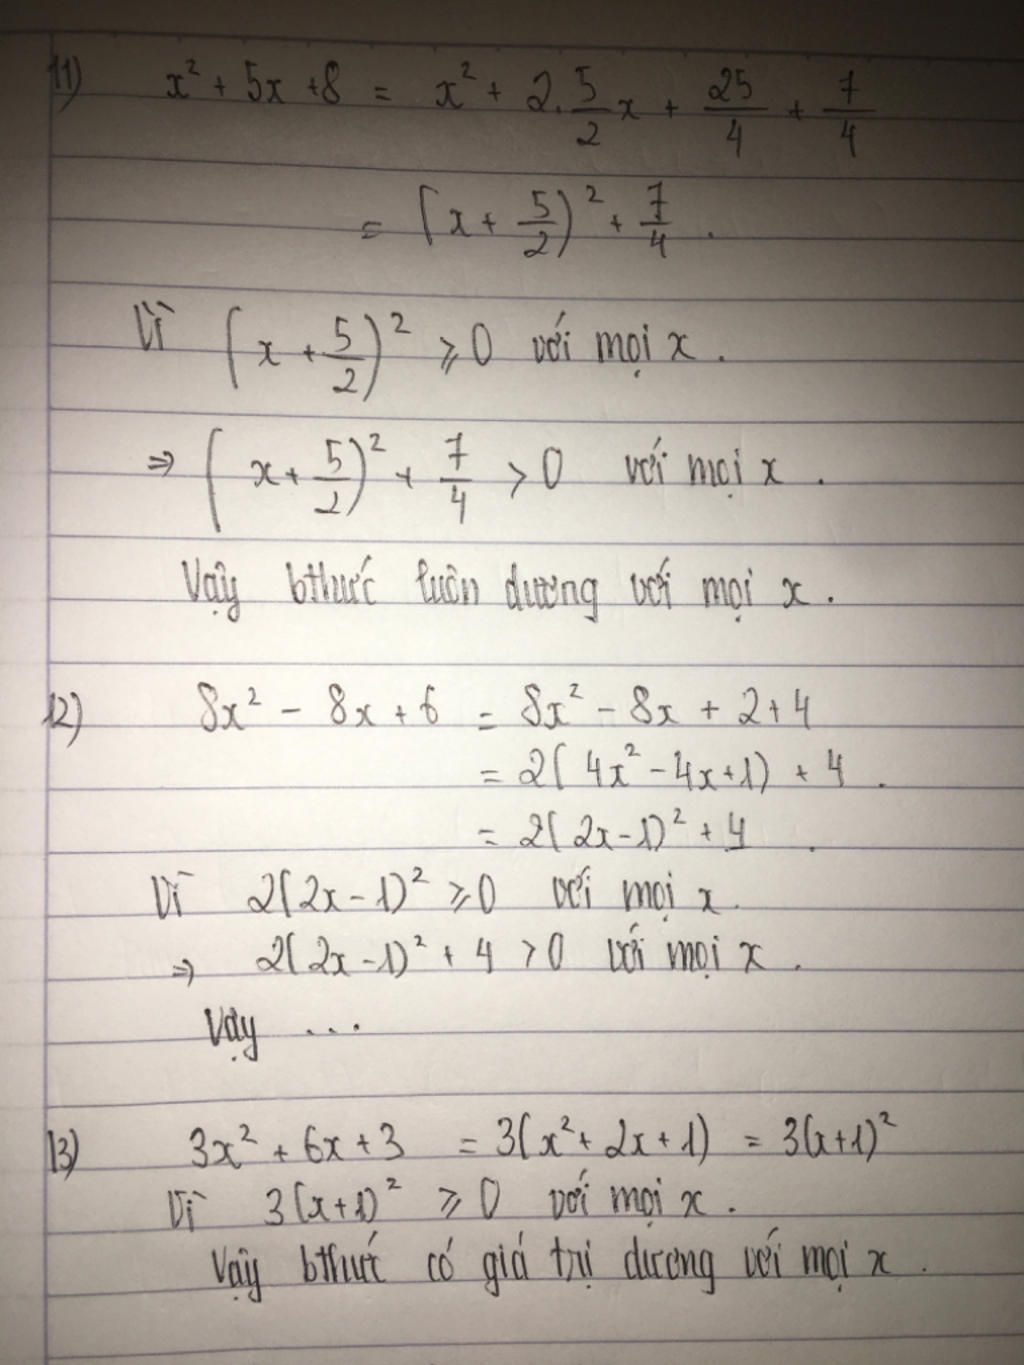 11) x² + 5x + 8 = x² + 2. 5/2 x + 25/4 + 7/4
= (x + 5/2)² + 7/4 .
Vì (x + 5/2)² ⩾ 0 với mọi x .
⇒ (x + 5/2)² + 7/4 > 0 với mọi x .
Vậy bthức luôn dương với mọi x .
12) 8x² - 8x + 6 = 8x² - 8x + 2 + 4
= 2(4x² - 4x + 1) + 4 .
= 2(2x - 1)² + 4 .
Vì 2(2x - 1)² ⩾ 0 với mọi x .
⇒ 2(2x - 1)² + 4 > 0 với mọi x .
Vậy ...
13) 3x² + 6x + 3 = 3(x² + 2x + 1) = 3(x + 1)²
Vì 3(x + 1)² ⩾ 0 với mọi x .
Vậy bthức có giá trị dương với mọi x .